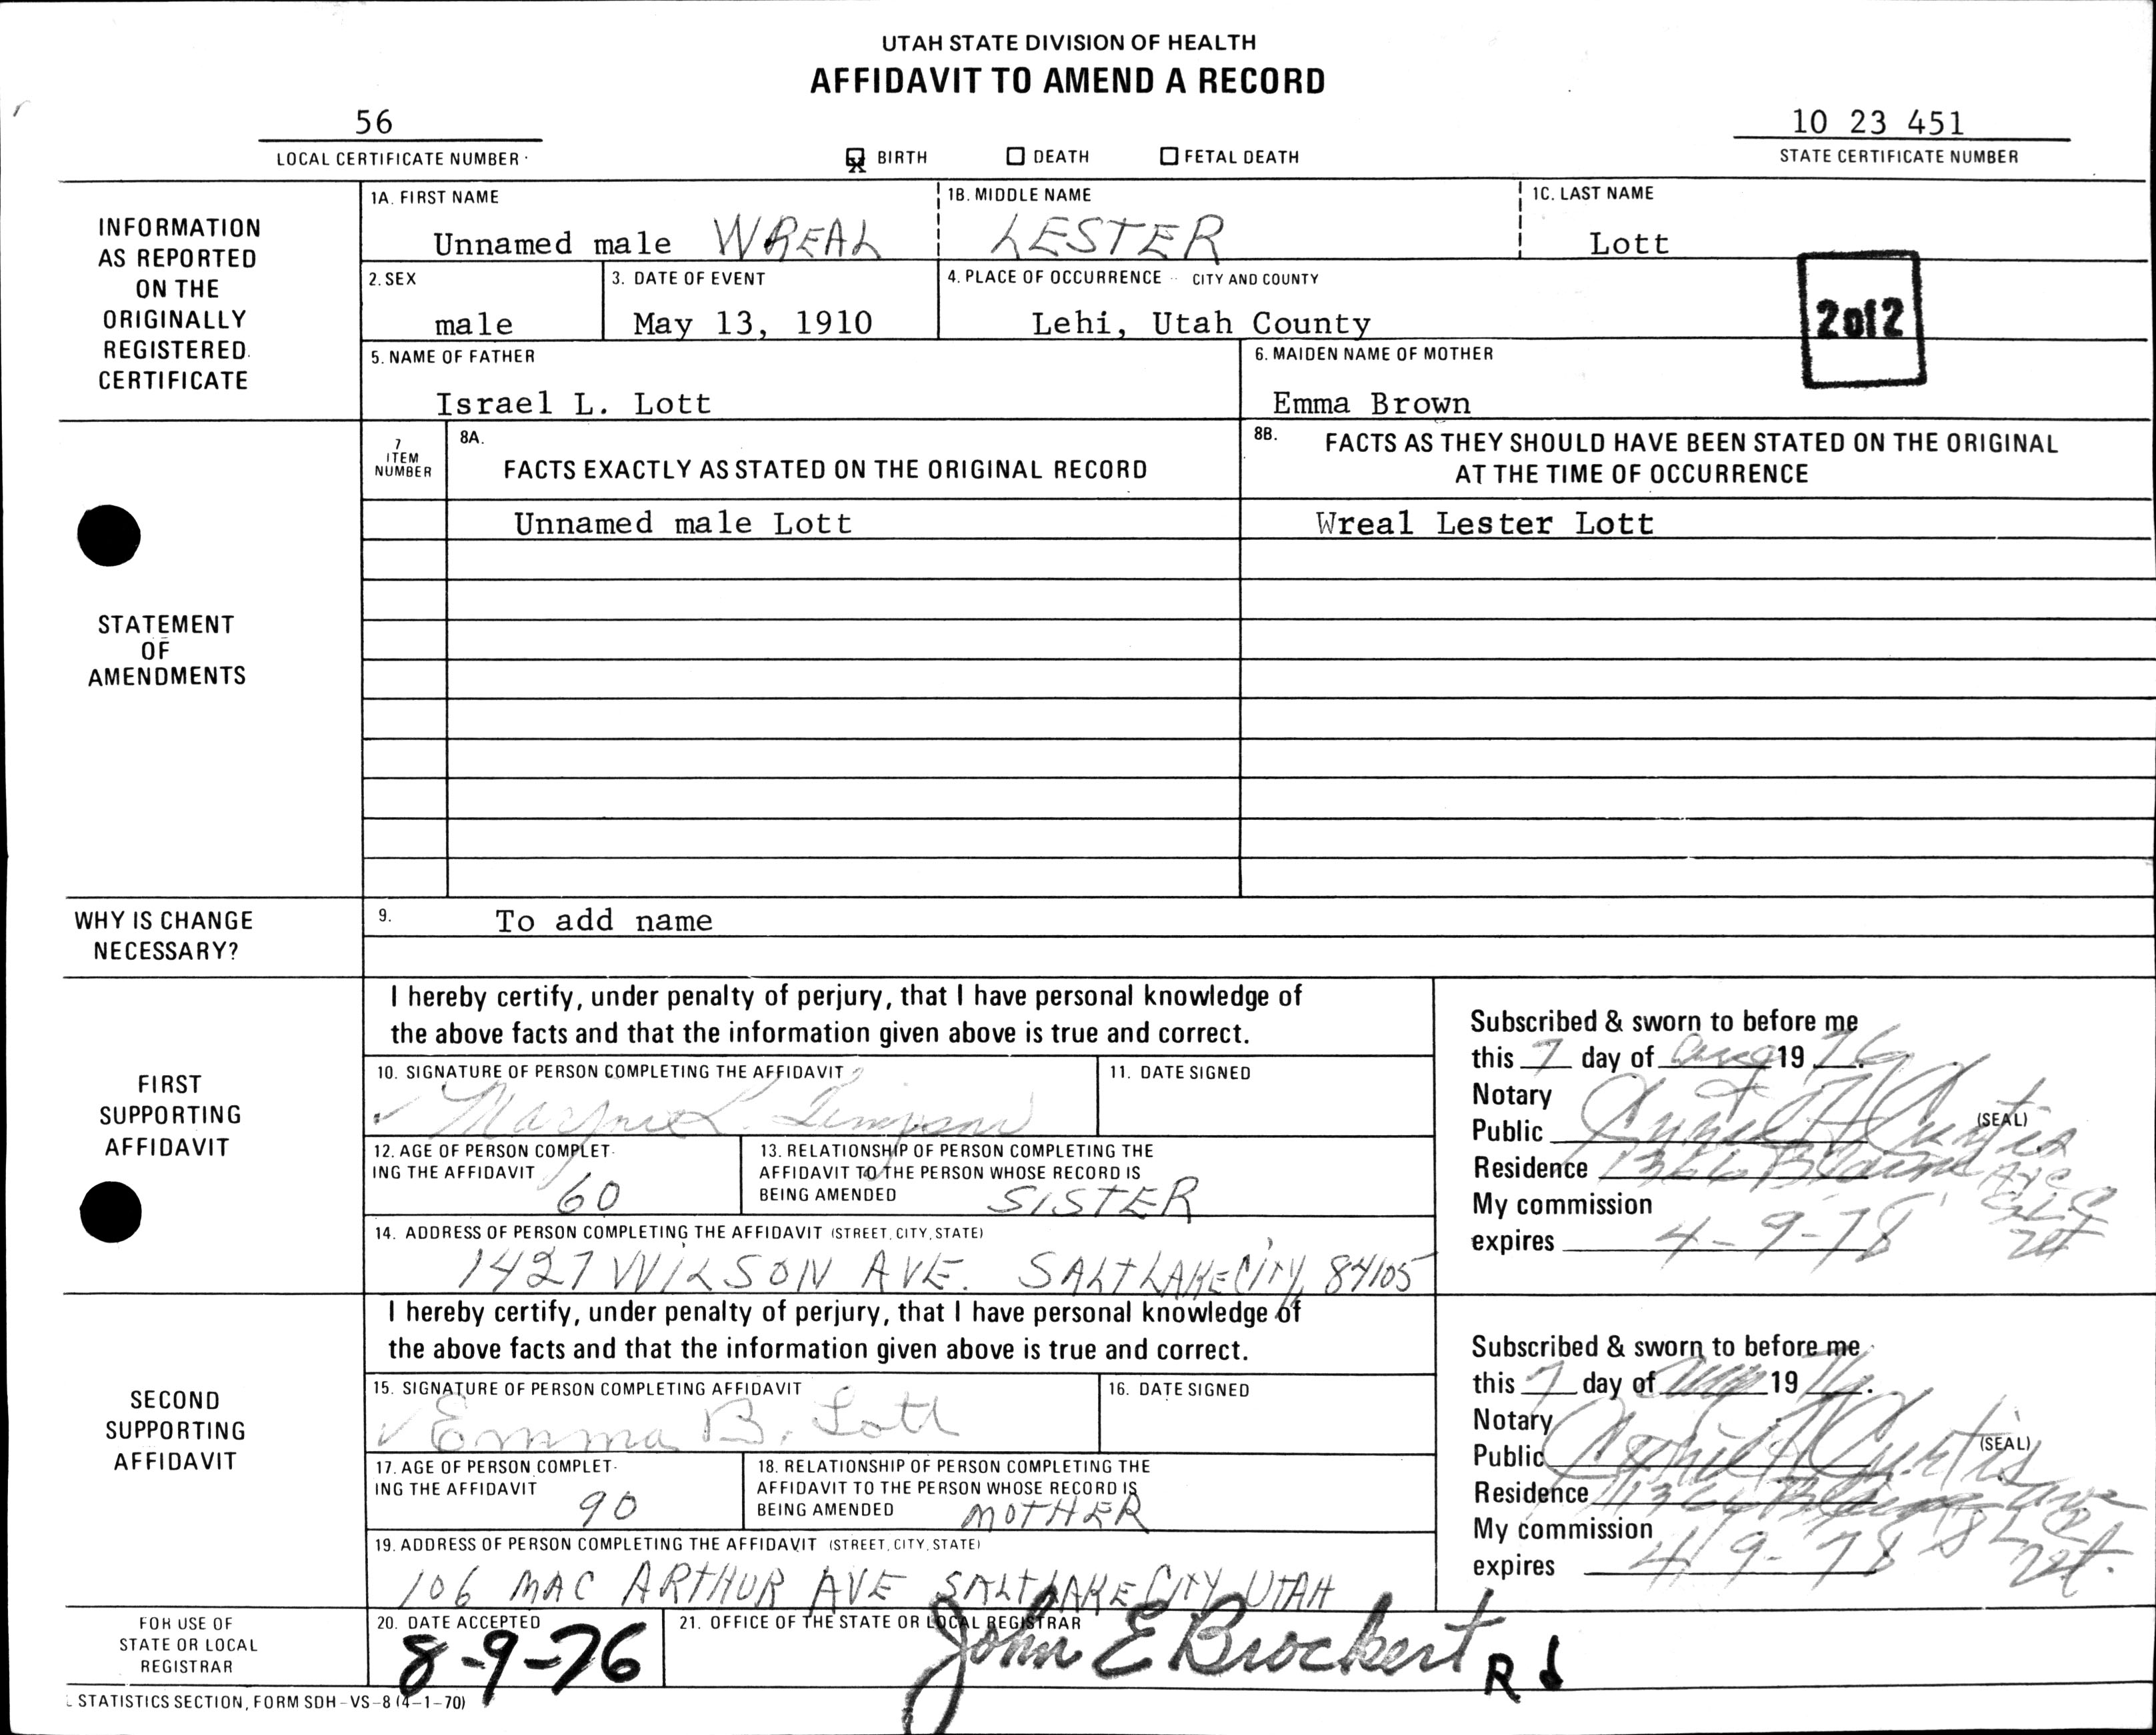 UTAH STATE DIVISION OF HEALTH
AFFIDAVIT TO AMEND A RECORD
56
LOCAL CERTIFICATE NUMBER
X BIRTH DEATH FETAL DEATH
10 23 451
STATE CERTIFICATE NUMBER
INFORMATION
AS REPORTED
ON THE
ORIGINALLY
REGISTERED
CERTIFICATE
1A. FIRST NAME
Unnamed male WREAL
1B. MIDDLE NAME
LESTER
1C. LAST NAME
Lott
2. SEX
male
3. DATE OF EVENT
May 13, 1910
4. PLACE OF OCCURRENCE -- CITY AND COUNTY
Lehi, Utah County
2 of 2
5. NAME OF FATHER
Israel L. Lott
6. MAIDEN NAME OF MOTHER
Emma Brown
STATEMENT
OF
AMENDMENTS
7
ITEM
NUMBER
8A.
FACTS EXACTLY AS STATED ON THE ORIGINAL RECORD
8B.
FACTS AS THEY SHOULD HAVE BEEN STATED ON THE ORIGINAL
AT THE TIME OF OCCURRENCE
Unnamed male Lott
Wreal Lester Lott
WHY IS CHANGE
NECESSARY?
9. To add name
FIRST
SUPPORTING
AFFIDAVIT
I hereby certify, under penalty of perjury, that I have personal knowledge of
the above facts and that the information given above is true and correct.
10. SIGNATURE OF PERSON COMPLETING THE AFFIDAVIT
L.
11. DATE SIGNED
12. AGE OF PERSON COMPLET-
ING THE AFFIDAVIT
60
13. RELATIONSHIP OF PERSON COMPLETING THE
AFFIDAVIT TO THE PERSON WHOSE RECORD IS
BEING AMENDED SISTER
14. ADDRESS OF PERSON COMPLETING THE AFFIDAVIT (STREET, CITY, STATE)
1427 WILSON AVE. SALT LAKE CITY, 84105
Subscribed & sworn to before me
this 7 day of Aug 19 76.
Notary
Public H Curtis (SEAL)
Residence 1366 Blaine Ave
SLC
My commission
expires 4-9-78
SECOND
SUPPORTING
AFFIDAVIT
I hereby certify, under penalty of perjury, that I have personal knowledge of
the above facts and that the information given above is true and correct.
15. SIGNATURE OF PERSON COMPLETING AFFIDAVIT
Emma B. Lott
16. DATE SIGNED
17. AGE OF PERSON COMPLET-
ING THE AFFIDAVIT
90
18. RELATIONSHIP OF PERSON COMPLETING THE
AFFIDAVIT TO THE PERSON WHOSE RECORD IS
BEING AMENDED MOTHER
19. ADDRESS OF PERSON COMPLETING THE AFFIDAVIT (STREET, CITY, STATE)
106 MAC ARTHUR AVE SALT LAKE CITY UTAH
Subscribed & sworn to before me
this 7 day of Aug 19 76.
Notary
Public H Curtis (SEAL)
Residence 1366 Blaine Ave
My commission
expires 4-9-78
FOR USE OF
STATE OR LOCAL
REGISTRAR
20. DATE ACCEPTED
8-9-76
21. OFFICE OF THE STATE OR LOCAL REGISTRAR
John E Brockert
STATISTICS SECTION, FORM SDH-VS-8 (4-1-70)